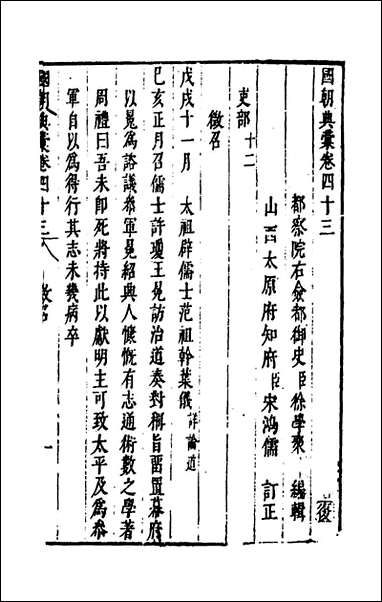 國朝典彙卷四十三
都察院右僉都御史臣徐學聚 編輯
山西太原府知府臣宋鴻儒 訂正
後
吏部十二
徵召
戊戌十一月 太祖辟儒士范祖幹葉儀 詳論道
巳亥正月召儒士許瓊王冕訪治道奏對稱旨留置幕府
以冕為諮議叅軍冕紹興人慷慨有志通術數之學著
周禮曰吾未即死將持此以獻明主可致太平及為叅
軍自以為得行其志未幾病卒
國朝典彙卷四十三 徵召 一